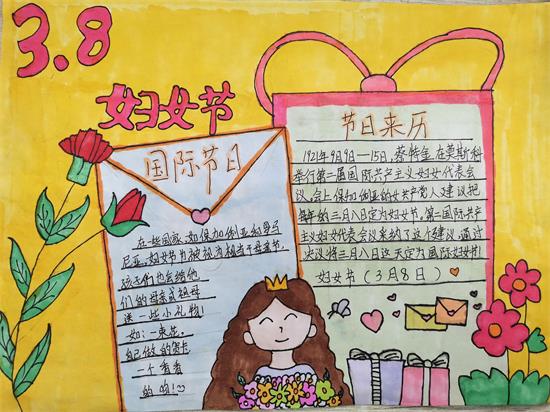 3.8
妇女节
国际节日
在些国家,如保加利亚和罗马
尼亚,妇女节为被视为相当于母亲节,
孩子们也会给他
们的母亲或祖母
送一些小礼物!
如:一束花,
自己做的贺卡
一个香香
的吻!
节日来历
1921年9月9—15日,蔡特金,在莫斯科
举行第二届国际共产主义妇女代表会
议,会上保加利亚的女共产党人建议把
每年的三月八日定为妇女节,第二国际共产
主义妇女代表会议采纳了这个建议,通过
决议将三月八日这天定为国际妇女节!
妇女节(3月8日)